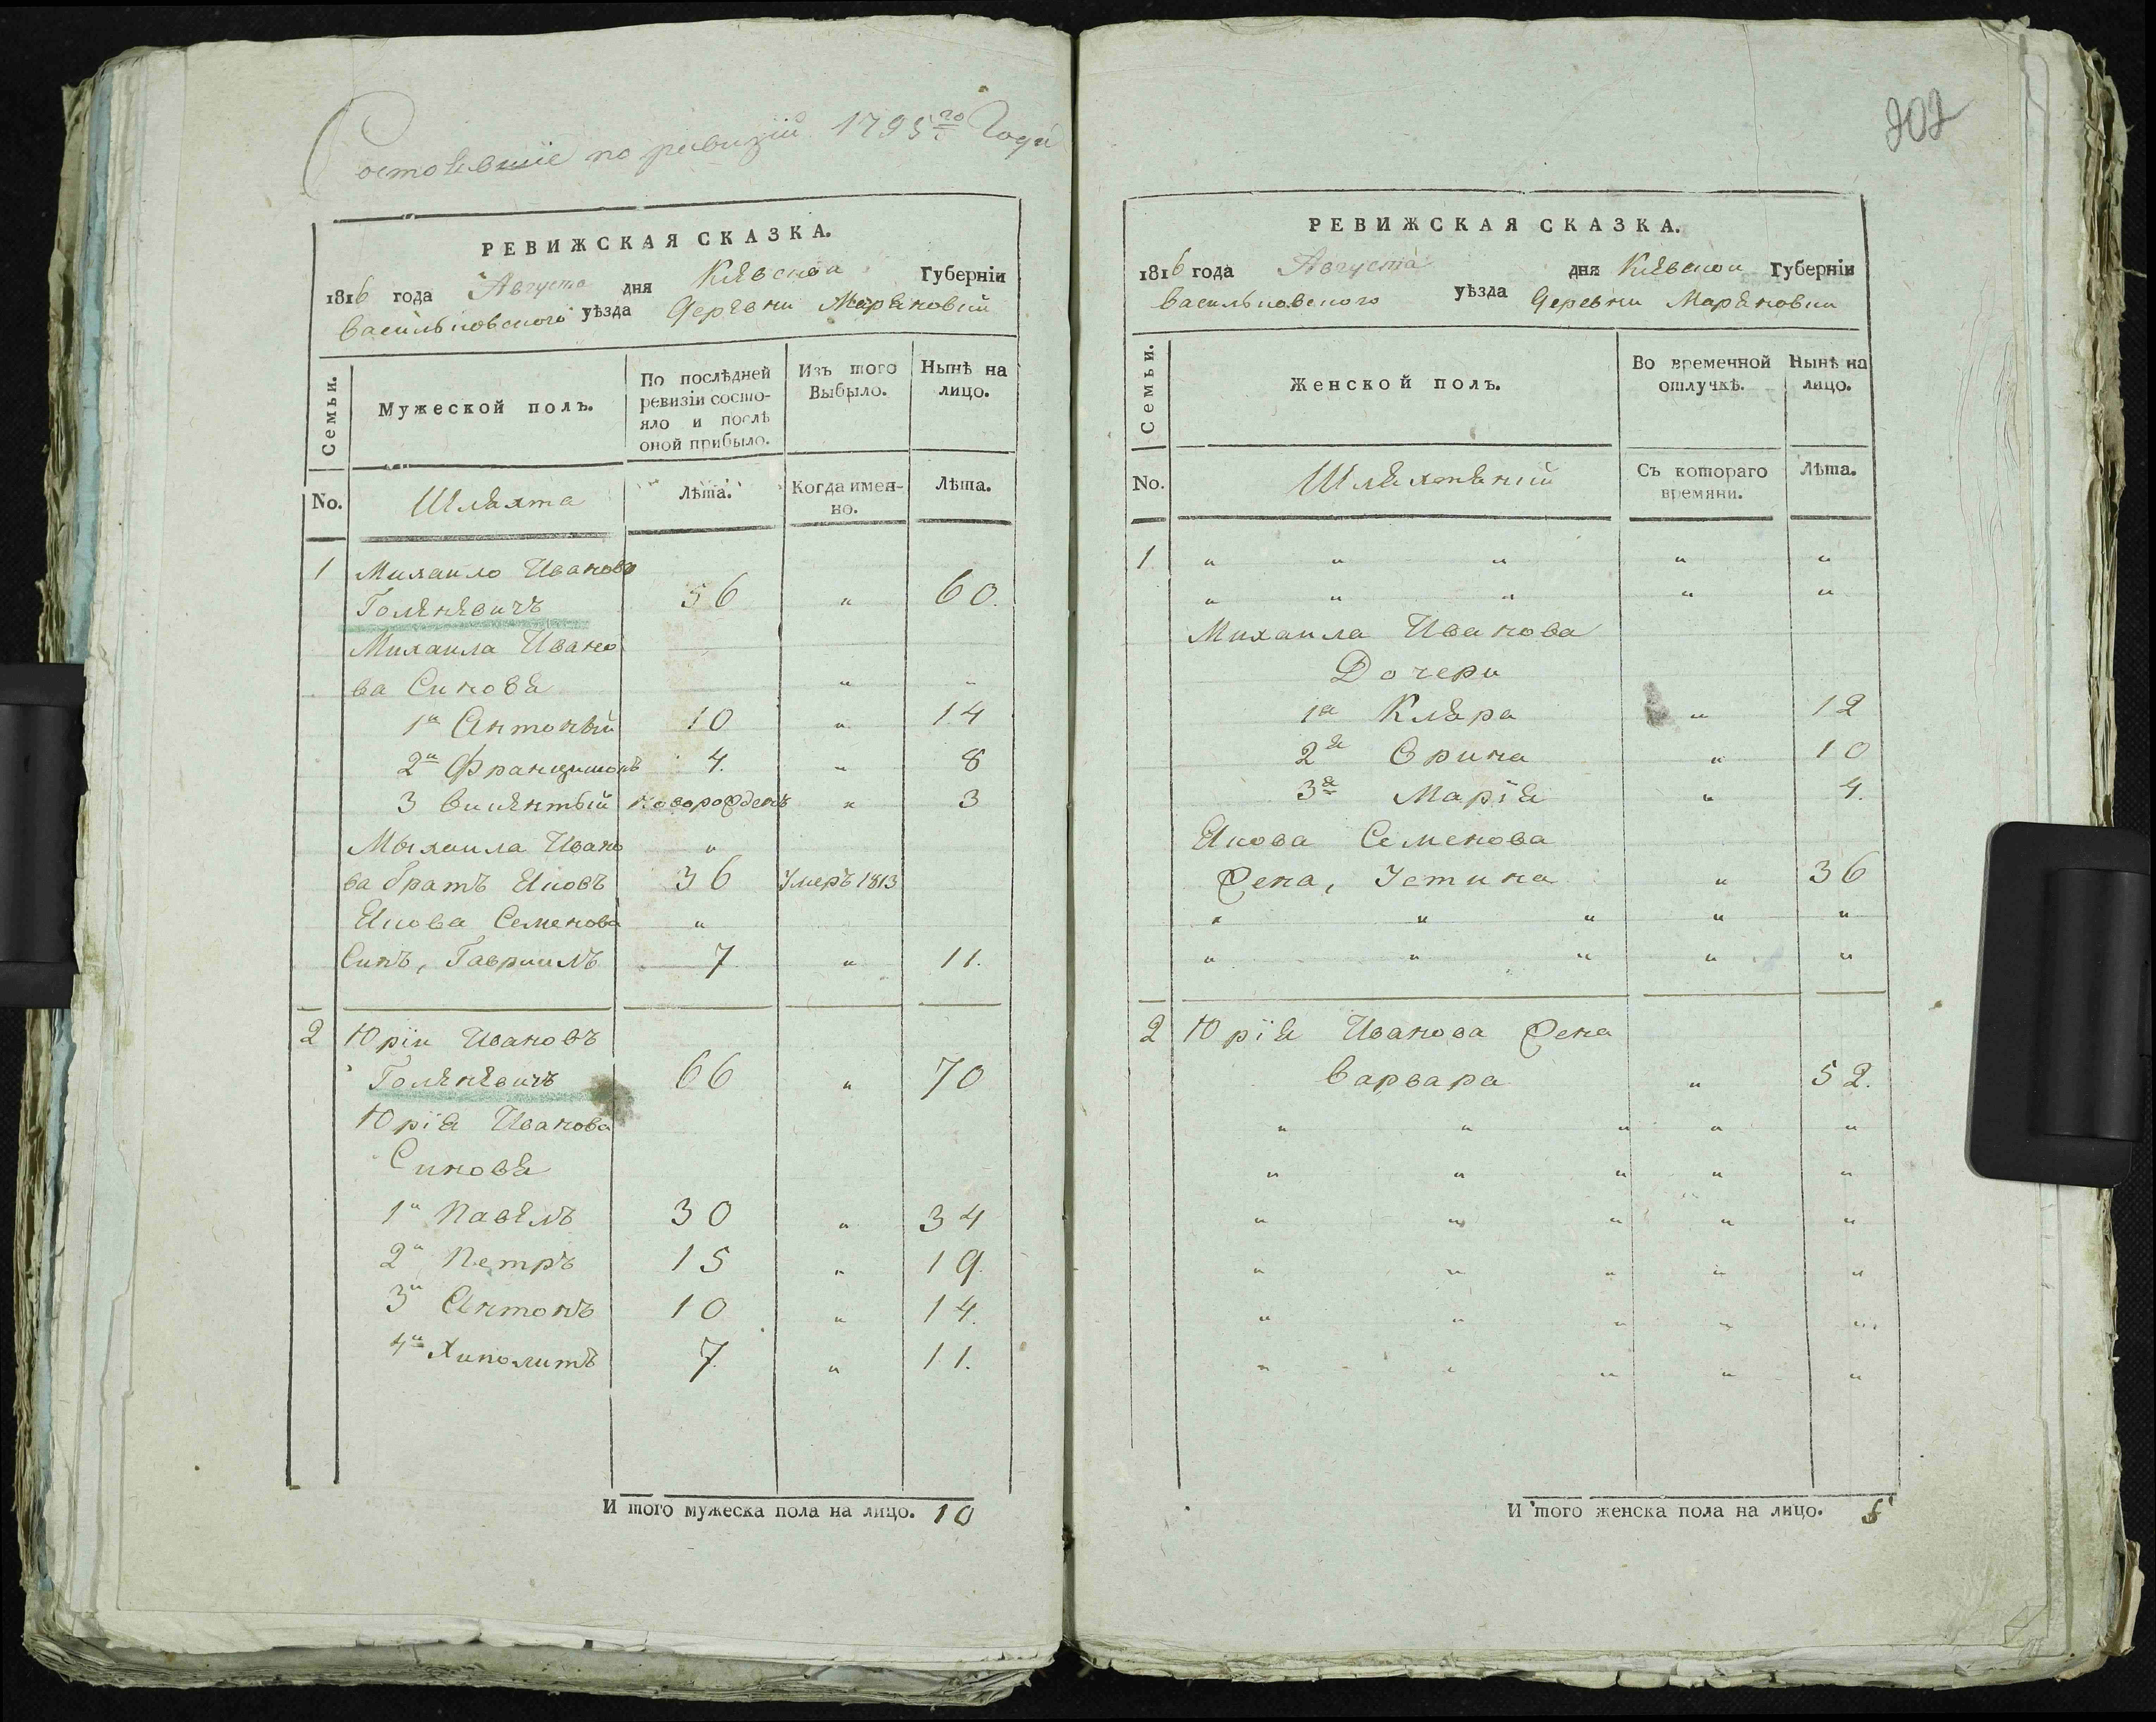 Состоявшіе по ревизіи 1795го Года
РЕВИЖСКАЯ СКАЗКА.
1816 года Августа дня Кіевской Губерніи
Васильковскаго уѣзда Деревни Маряновки
Семьи.
Мужеской полъ.
По послѣдней ревизіи состояло и послѣ оной прибыло.
Изъ того Выбыло.
Нынѣ на лицо.
No. Шляхта Лѣта. Когда именно. Лѣта.
1 Михаило Иванов
Голеневичъ 56 " 60.
Михаила Ивано
ва Синовя " "
1й Антоный 10 " 14
2й Францишокъ 4. " 8
3 Викентый новорожденъ " 3
Мыхаила Ивано "
ва братъ Яковъ 36 Умеръ 1813
Якова Семенова "
Синъ, Гавриилъ 7 " 11.
2 Юріи Ивановъ
Голеневичъ 66 " 70
Юрія Иванова
Синовя
1й Павелъ 30 " 34
2й Петръ 15 " 19.
3й Антонъ 10 " 14.
4й Хиполитъ 7. " 11.
И того мужеска пола на лицо. 10
202
РЕВИЖСКАЯ СКАЗКА.
1816 года Августа дня Кіевской Губерніи
Васильковского уѣзда Деревни Маряновки
Семьи.
Женской полъ.
Во временной отлучкѣ.
Нынѣ на лицо.
No. Съ котораго времяни. Лѣта.
1 " " " " "
" " " " "
Михаила Иванова
Дочери
1я Кляра " 12
2я Орина " 10
3я Марія " 4.
Якова Семенова
Жена, Устина " 36
" " " " "
" " " " "
2 Юрія Иванова Жена
Варвара " 52.
" " " " "
" " " " "
" " " " "
" " " " "
" " " " "
" " " " "
И того женска пола на лицо. 5